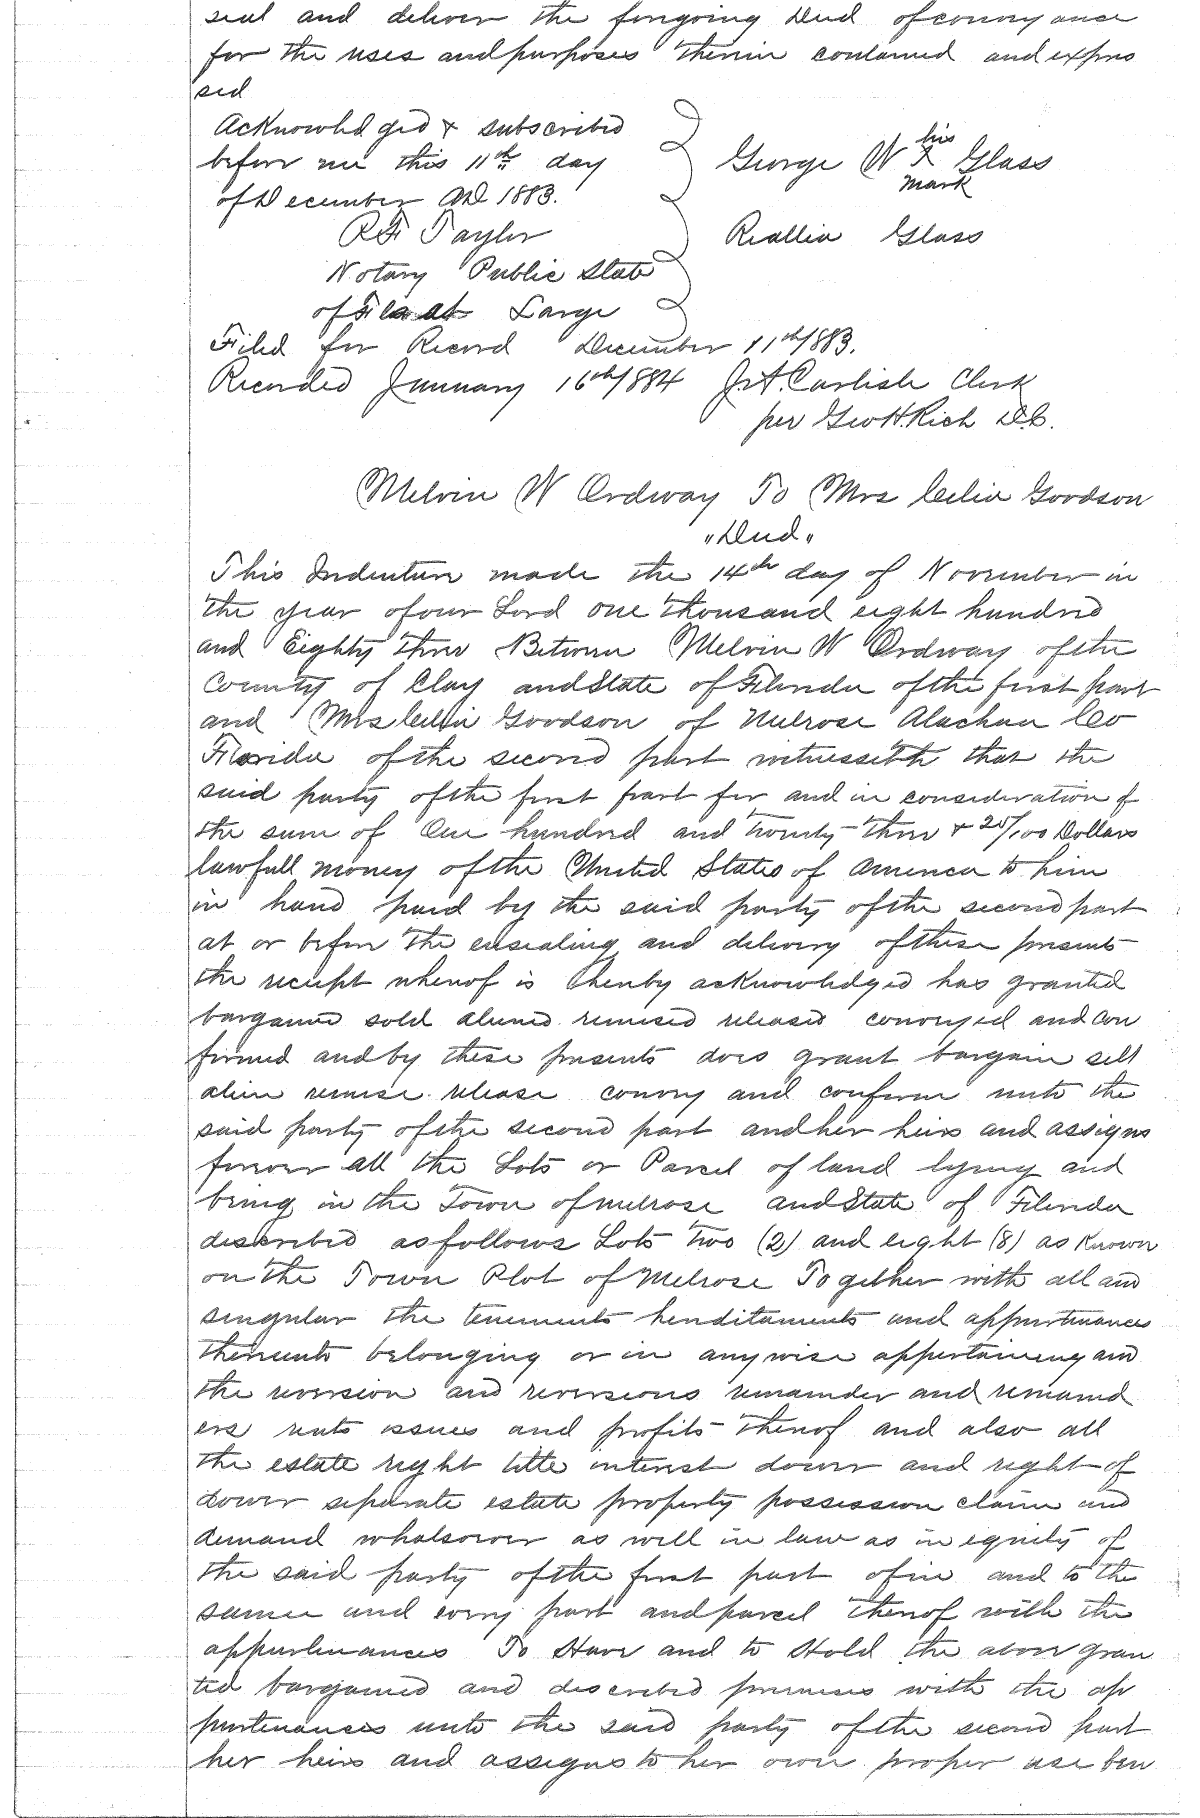 seal and deliver the foregoing Deed of conveyance
for the uses and purposes therein contained and expres
sed
Acknowledged & subscribed
before me this 11th day
of December AD 1883.
George W his X mark Glass
R F Taylor
Reallia Glass
Notary Public State
of Fla at Large
Filed for Record December 11th/883.
Recorded January 16th/884 J. A. Carlisle Clerk
per Geo H. Rich D.C.
Melvin W Ordway To Mrs Celia Goodson
"Deed"
This Indenture made the 14th day of November in
the year of our Lord one thousand eight hundred
and Eighty three Between Melvin W Ordway of the
County of Clay and State of Florida of the first part
and Mrs Celia Goodson of Melrose Alachua Co
Florida of the second part witnesseth that the
said party of the first part for and in consideration of
the sum of One hundred and twenty-three & 20/100 Dollars
lawfull money of the United States of America to him
in hand paid by the said party of the second part
at or before the ensealing and delivery of these presents
the receipt whereof is hereby acknowledged has granted
bargained sold aliened remised released conveyed and con
firmed and by these presents does grant bargain sell
alien remise release convey and confirm unto the
said party of the second part and her heirs and assigns
forever all the Lots or Parcel of land lying and
being in the Town of Melrose and State of Florida
described as follows Lots two (2) and eight (8) as Known
on the Town Plot of Melrose Together with all and
singular the tenements hereditaments and appurtenances
thereunto belonging or in anywise appertaining and
the reversion and reversions remainder and remaind
ers rents issues and profits thereof and also all
the estate right title interest dower and right of
dower separate estate property possession claim and
demand whatsoever as well in law as in equity of
the said party of the first part of in and to the
same and every part and parcel thereof with the
appurtenances To Have and to Hold the above gran
ted bargained and described premises with the ap
purtenances unto the said party of the second part
her heirs and assigns to her own proper use ben